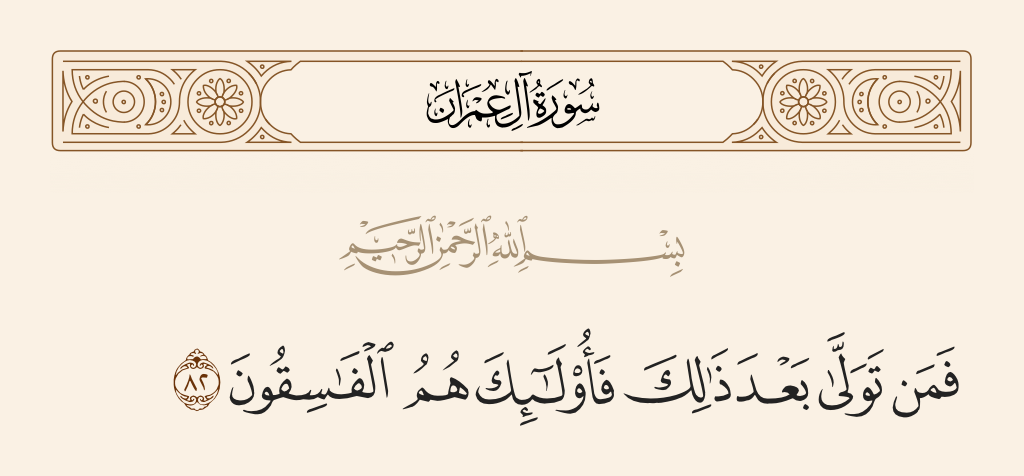 سُورَةُ آلِ عِمْرَانَ
بِسْمِ ٱللَّهِ ٱلرَّحْمَٰنِ ٱلرَّحِيمِ
فَمَن تَوَلَّىٰ بَعْدَ ذَٰلِكَ فَأُو۟لَـٰٓئِكَ هُمُ ٱلْفَـٰسِقُونَ ٨٢